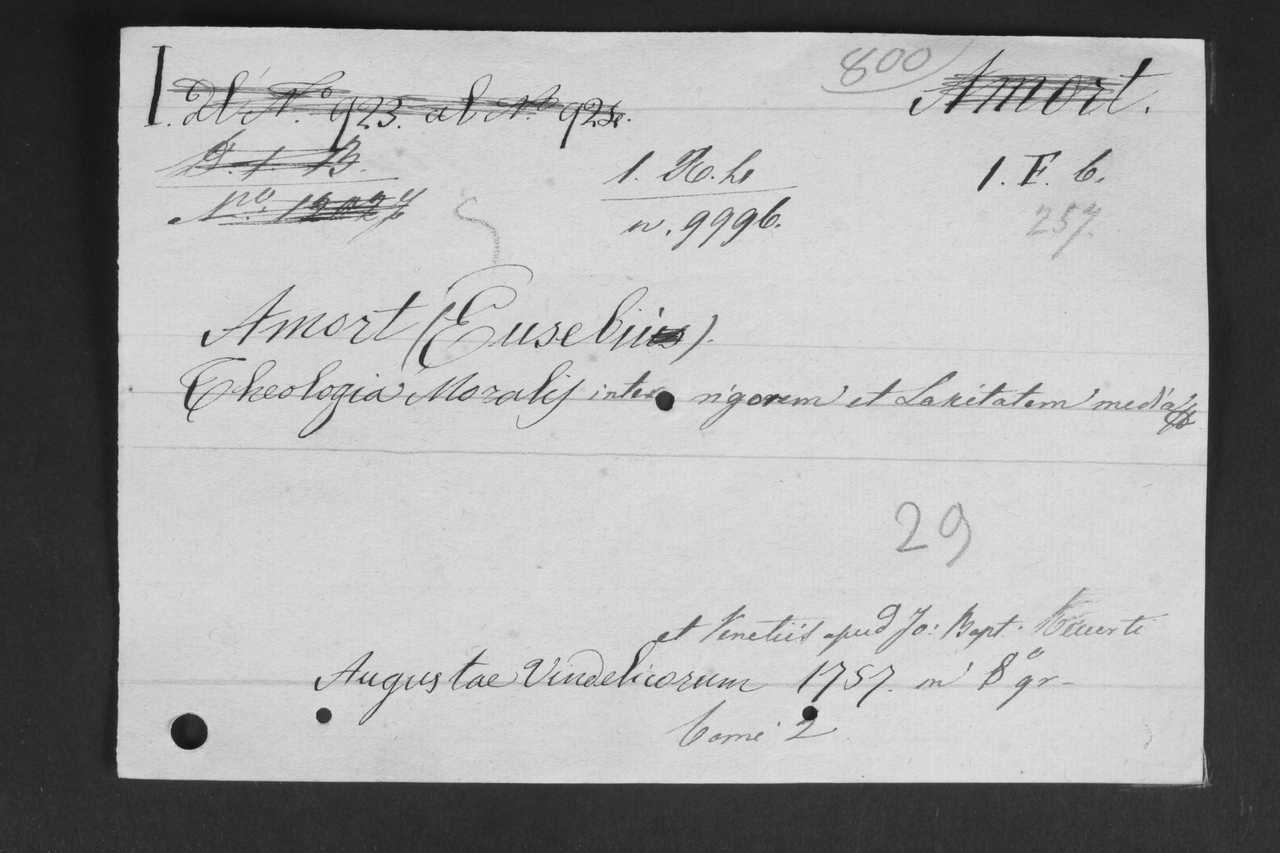 800
Amort.
I. Al N.º 923. al Nº 924.
1. H. h
n. 9996.
1. F. 6.
257.
Amort (Eusebius).
Theologia Moralis inter rigorem et Laxitatem media
29
et Venetiis apud Jo: Bapt.
Augustae Vindelicorum 1757. in 8º gr-
tomi 2